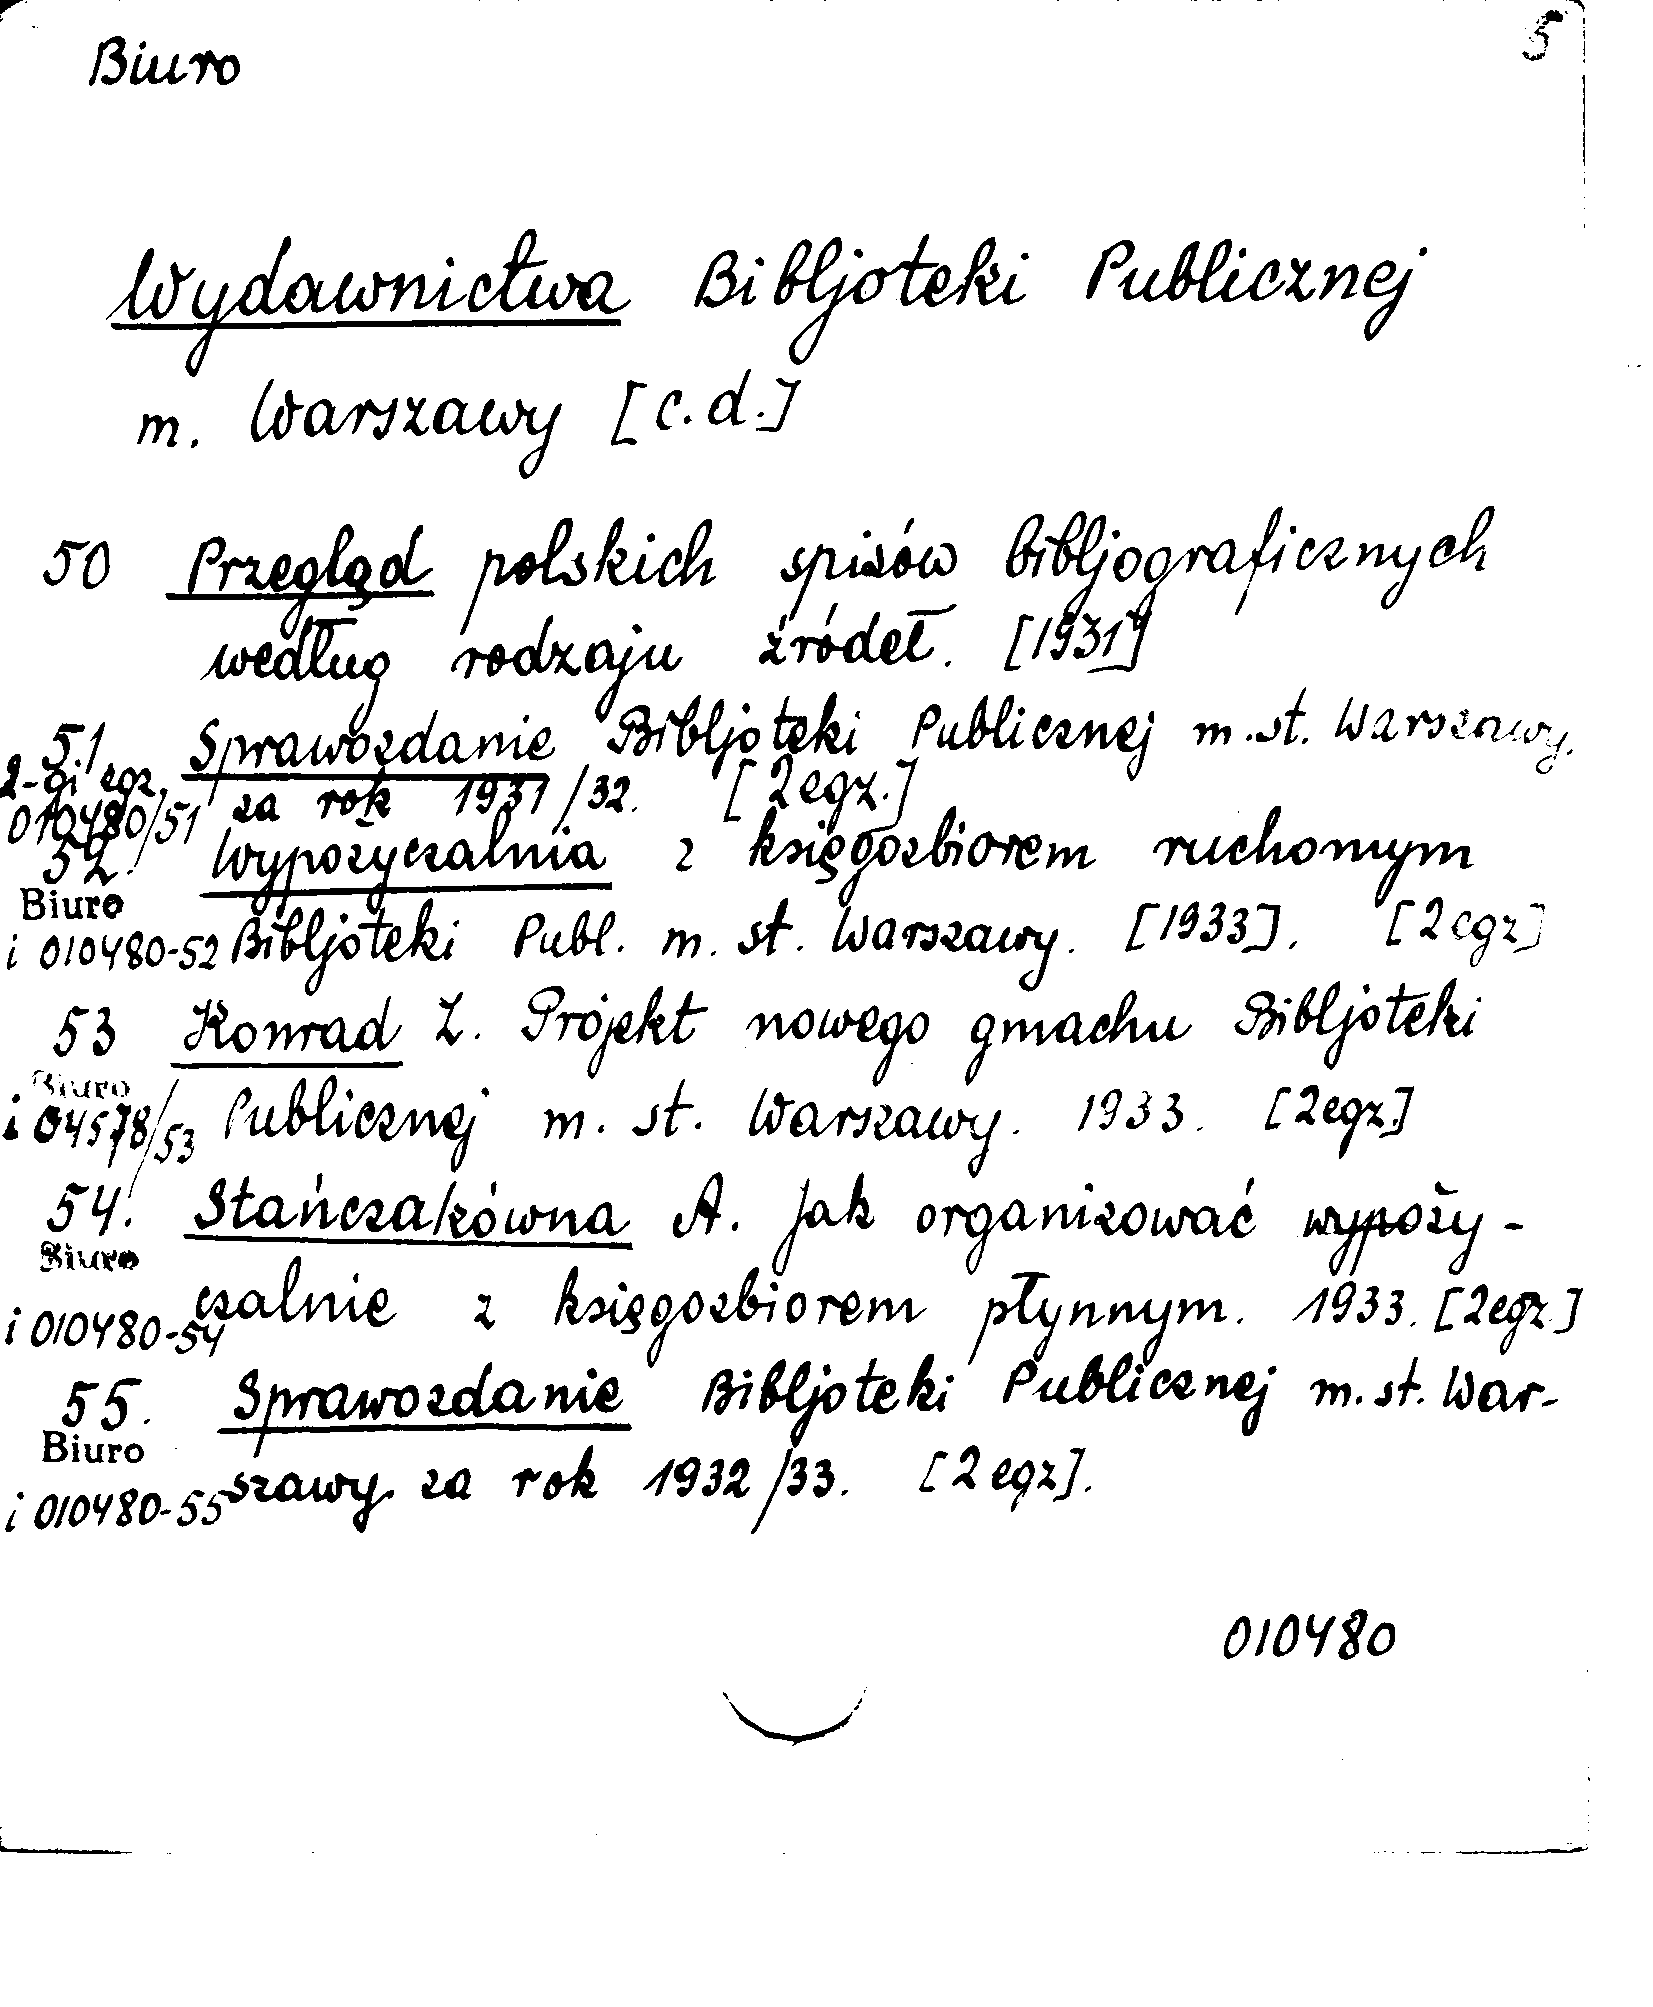 Biuro
5
Wydawnictwa Bibljoteki Publicznej
m. Warszawy [c.d.]
50 Przegląd polskich spisów bibljograficznych
według rodzaju źródeł. [1931]
51 Sprawozdanie Bibljoteki Publicznej m.st. Warszawy.
2-gi egz. za rok 1931/32. [2egz.]
010480/51
52. Wypożyczalnia z księgozbiorem ruchomym
Biuro
i 010480-52 Bibljoteki Publ. m. st. Warszawy. [1933]. [2egz]
53 Konrad Z. Projekt nowego gmachu Bibljoteki
Biuro
i 04578/53 Publicznej m. st. Warszawy. 1933. [2egz.]
54. Stańczakówna A. Jak organizować wypoży-
Biuro
i 010480-54 czalnie z księgozbiorem płynnym. 1933. [2egz.]
55. Sprawozdanie Bibljoteki Publicznej m.st. War-
Biuro
i 010480-55 szawy. za rok 1932/33. [2egz].
010480